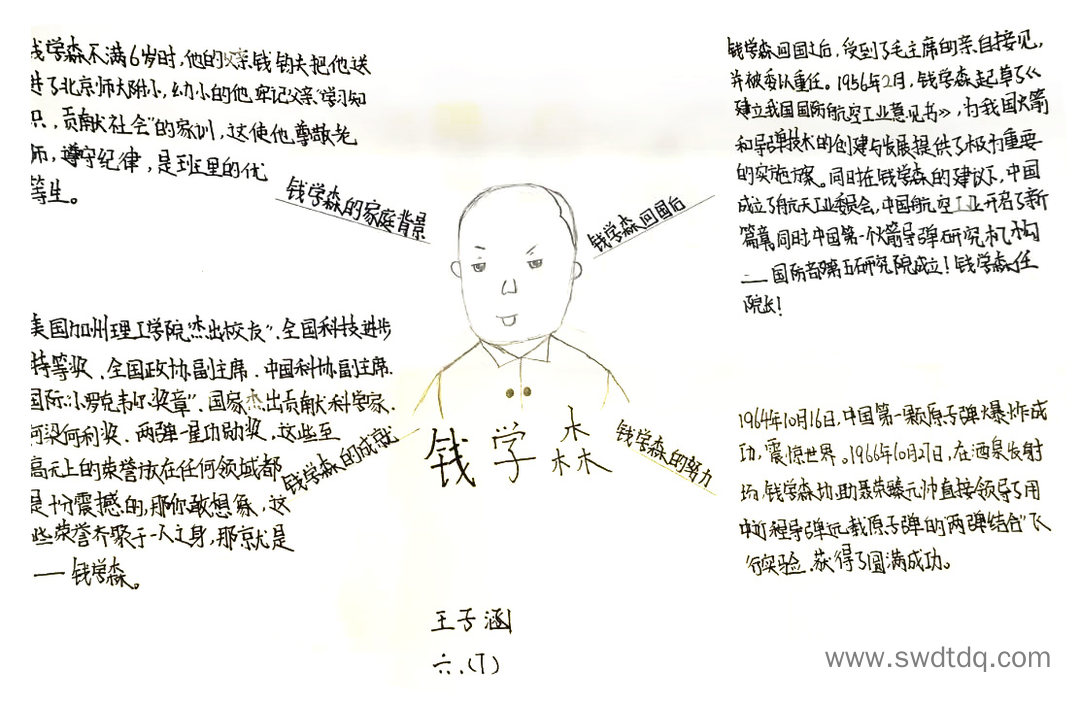 钱学森不满6岁时,他的父亲钱钧夫把他送
进了北京师大附小,幼小的他牢记父亲“学习知
识,贡献社会”的家训,这使他尊敬老
师,遵守纪律,是班里的优
等生。
钱学森的家庭背景
钱学森回国后,受到了毛主席的亲自接见,
并被委以重任。1956年2月,钱学森起草了《
建立我国国防航空工业意见书》,为我国火箭
和导弹技术的创建与发展提供了极为重要
的实施方案。同时在钱学森的建议下,中国
成立了航天工业委员会,中国航空工业开启了新
篇章,同时,中国第一个火箭导弹研究机构
——国防部第五研究院成立!钱学森任
院长!
钱学森回国后
美国加州理工学院“杰出校友”、全国科技进步
特等奖、全国政协副主席、中国科协副主席、
国际“小罗克韦尔奖章”、国家杰出贡献科学家、
何梁何利奖、两弹一星功勋奖,这些至
高无上的荣誉放在任何领域都
是十分震撼的,那你敢想象,这
些荣誉齐聚于一人之身,那就是
——钱学森。
钱学森的成就
钱学森
钱学森的努力
1964年10月16日,中国第一颗原子弹爆炸成
功,震惊世界。1966年10月27日,在酒泉发射
场,钱学森协助聂荣臻元帅直接领导了用
中近程导弹运载原子弹的“两弹结合”飞
行实验,获得了圆满成功。
王子涵
六.(1)
www.swdtdq.com